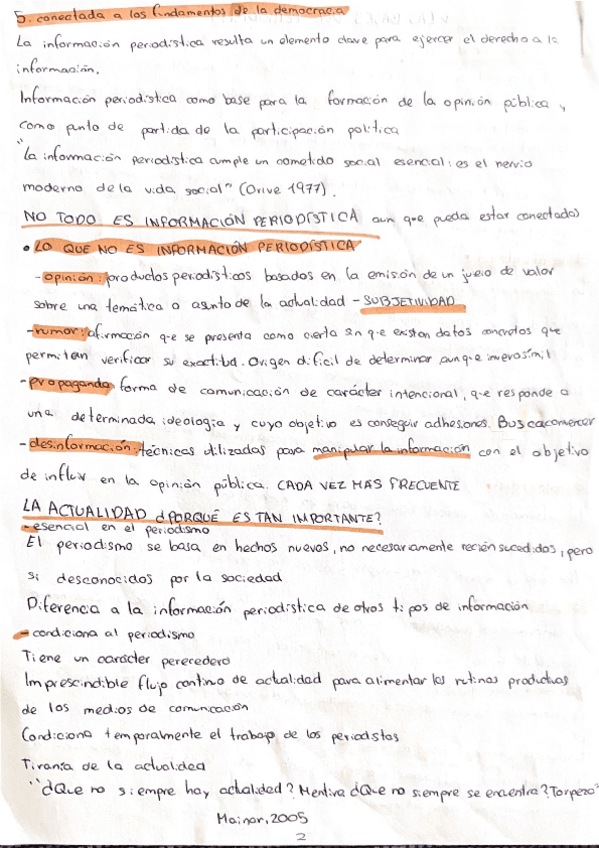 5. conectada a los fundamentos de la democracia
La información periodística resulta un elemento clave para ejercer el derecho a la
información.
Información periodística como base para la formación de la opinión pública y
como punto de partida de la participación política
"La información periodística cumple un cometido social esencial: es el nervio
moderno de la vida social" (Orive 1977).
NO TODO ES INFORMACIÓN PERIODÍSTICA aun que pueda estar conectada)
• LO QUE NO ES INFORMACIÓN PERIODÍSTICA
- opinión: productos periodísticos basados en la emisión de un juicio de valor
sobre una temática o asunto de la actualidad - SUBJETIVIDAD
- rumor: afirmación que se presenta como cierta sin que existan datos concretos que
permitan verificar su exactitud. Origen difícil de determinar aunque inverosímil
- propaganda forma de comunicación de carácter intencional, que responde a
una determinada ideología y cuyo objetivo es conseguir adhesiones. Busca convencer
- desinformación: técnicas utilizadas para manipular la información con el objetivo
de influir en la opinión pública. CADA VEZ MÁS FRECUENTE
LA ACTUALIDAD ¿PORQUÉ ES TAN IMPORTANTE?
- esencial en el periodismo
El periodismo se basa en hechos nuevos, no necesariamente recién sucedidos, pero
si desconocidos por la sociedad
Diferencia a la información periodística de otros tipos de información
- condiciona al periodismo
Tiene un carácter perecedero
Imprescindible flujo continuo de actualidad para alimentar las rutinas productivas
de los medios de comunicación
Condiciona temporalmente el trabajo de los periodistas
Tiranía de la actualidad
"¿Que no siempre hay actualidad? Mentira ¿Que no siempre se encuentra? Torpeza"
Mainar, 2005
2